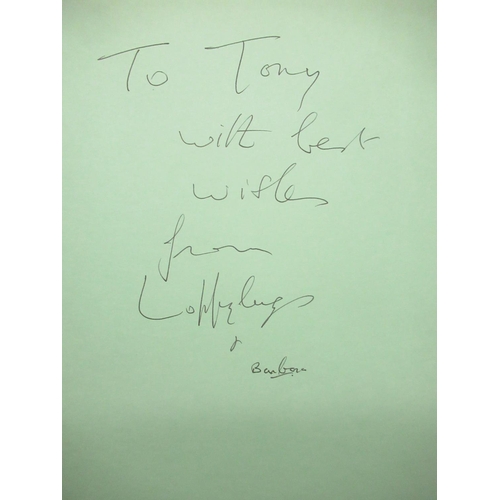 To Tony
with best
wishes
from
Loppylugs
&
Barbara